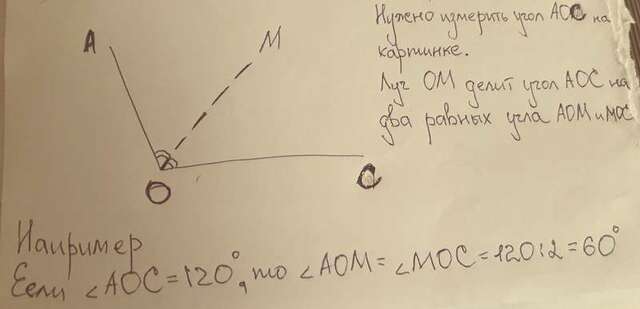 A
M
O
C
Нужно измерить угол AOC на
картинке.
Луч OM делит угол AOC на
два равных угла AOM и MOC
Например
Если ∠AOC = 120°, то ∠AOM = ∠MOC = 120:2 = 60°